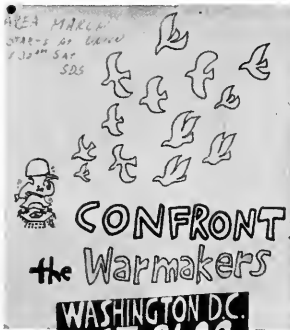 AREA MARCH
AT UNION
SAT
SDS
CONFRONT
the Warmakers
WASHINGTON D.C.